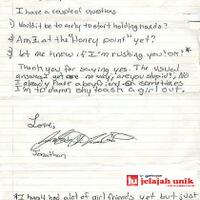 I have a couple of questions
1) Would it be to early to start holding hands?
2) Am I at the "Honey point" yet?
3) let me know if I'm rushing you! ok!
Thank you for saying yes. The usual
answer I get are no way, are you stupid?, NO
I already have a boyf. and on sometimes
I'm to damn shy to ask a girl out.
Love,
Jonathan
jelajah unik
*I haven't had alot of girl friends yet but just